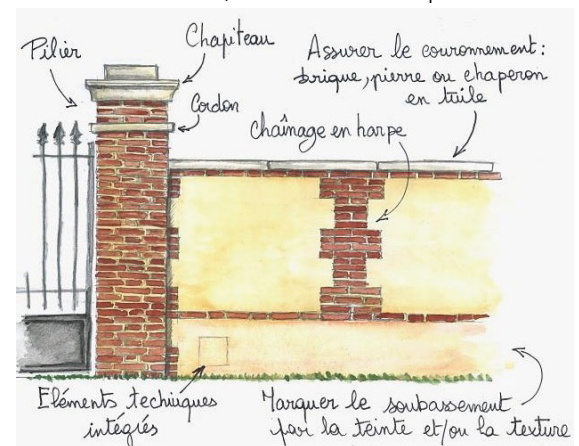 Pilier
Chapiteau
Cordon
Assurer le couronnement:
brique, pierre ou chaperon
en tuile
Chaînage en harpe
Eléments techniques
intégrés
Marquer le soubassement
par la teinte et/ou la texture